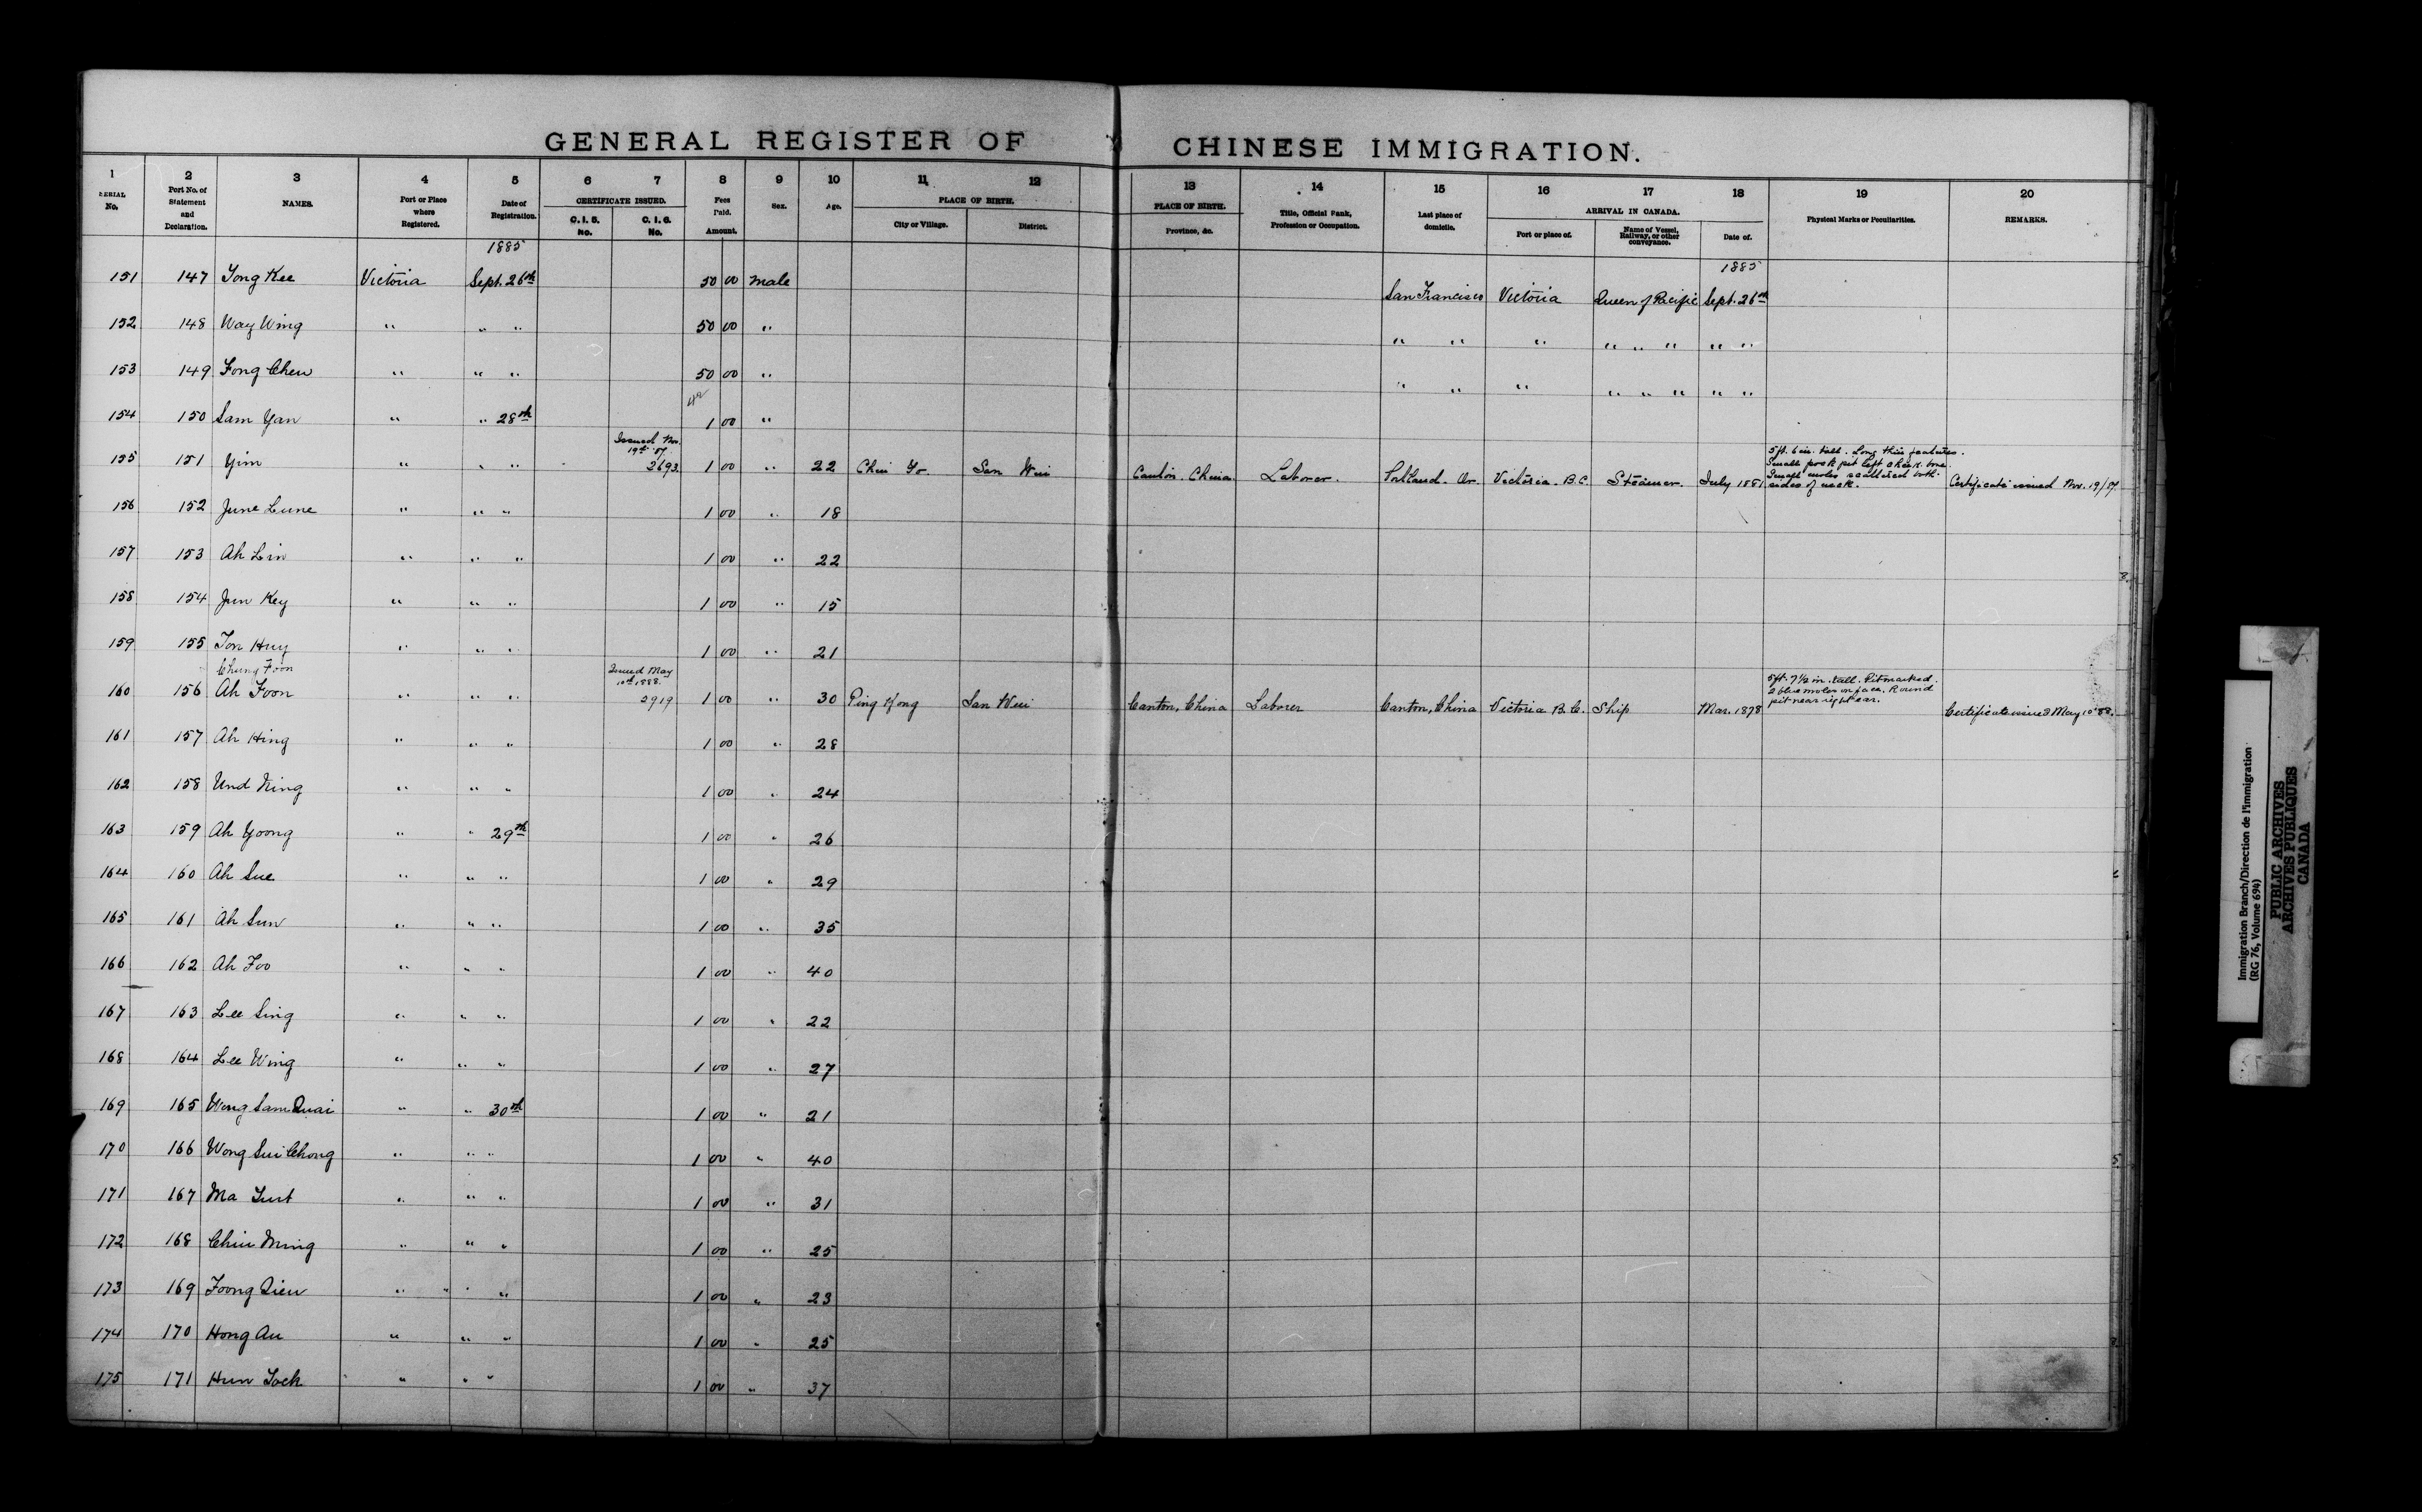 GENERAL REGISTER OF CHINESE IMMIGRATION.
1 2 3 4 5 6 7 8 9 10 11 12 13 14 15 16 17 18 19 20
SERIAL No. Port No. of Statement and Declaration. NAMES. Port or Place where Registered. Date of Registration. CERTIFICATE ISSUED. C. I. 5. No. C. I. 6. No. Fees Paid. Amount. Sex. Age. PLACE OF BIRTH. City or Village. District. PLACE OF BIRTH. Province, &c. Title, Official Rank, Profession or Occupation. Last place of domicile. ARRIVAL IN CANADA. Port or place of. Name of Vessel, Railway, or other conveyance. Date of. Physical Marks or Peculiarities. REMARKS.
1885 1885
151 147 Yong Kee Victoria Sept. 26th 50 00 Male San Francisco Victoria Queen of Pacific Sept. 26th
152 148 Way Wing " " " 50 00 " " " " " " " " "
153 149 Fong Chew " " " 50 00 " " " " " " " " "
154 150 Sam Yan " " 28th 1 00 "
Issued Nov. 19th 87
155 151 Yim " " " 2693 1 00 " 22 Chui Yo San Wui Canton. China Laborer. Portland. Or. Victoria. B.C. Steamer. July 1881 5ft. 6 in. tall. Long thin features. Small pock pit left cheek bone. Small moles scattered both sides of neck. Certificate issued Nov. 19/87
156 152 June Lune " " " 1 00 " 18
157 153 Ah Lin " " " 1 00 " 22
158 154 Jun Key " " " 1 00 " 15
159 155 Ton Huy " " " 1 00 " 21
Chung Foon Issued May 10th 1888.
160 156 Ah Foon " " " 2919 1 00 " 30 Ping Kong San Wui Canton, China Laborer Canton, China Victoria B.C. Ship Mar. 1878 5ft. 7½ in. tall. Pitmarked. 2 blue moles on face. Round pit near right ear. Certificate issued May 10 88.
161 157 Ah Hing " " " 1 00 " 28
162 158 Und Ning " " " 1 00 " 24
163 159 Ah Yoong " " 29th 1 00 " 26
164 160 Ah Sue " " " 1 00 " 29
165 161 Ah Sun " " " 1 00 " 35
166 162 Ah Foo " " " 1 00 " 40
167 163 Lee Sing " " " 1 00 " 22
168 164 Lee Wing " " " 1 00 " 27
169 165 Wong Sam Quai " " 30th 1 00 " 21
170 166 Wong Sui Chong " " " 1 00 " 40
171 167 Ma " " " 1 00 " 31
172 168 Chin Ming " " " 1 00 " 25
173 169 Foong " " " 1 00 " 23
174 170 Hong Au " " " 1 00 " 25
175 171 Hun " " " 1 00 " 37
Immigration Branch/Direction de l'immigration
(RG 76, Volume 694)
PUBLIC ARCHIVES
ARCHIVES PUBLIQUES
CANADA